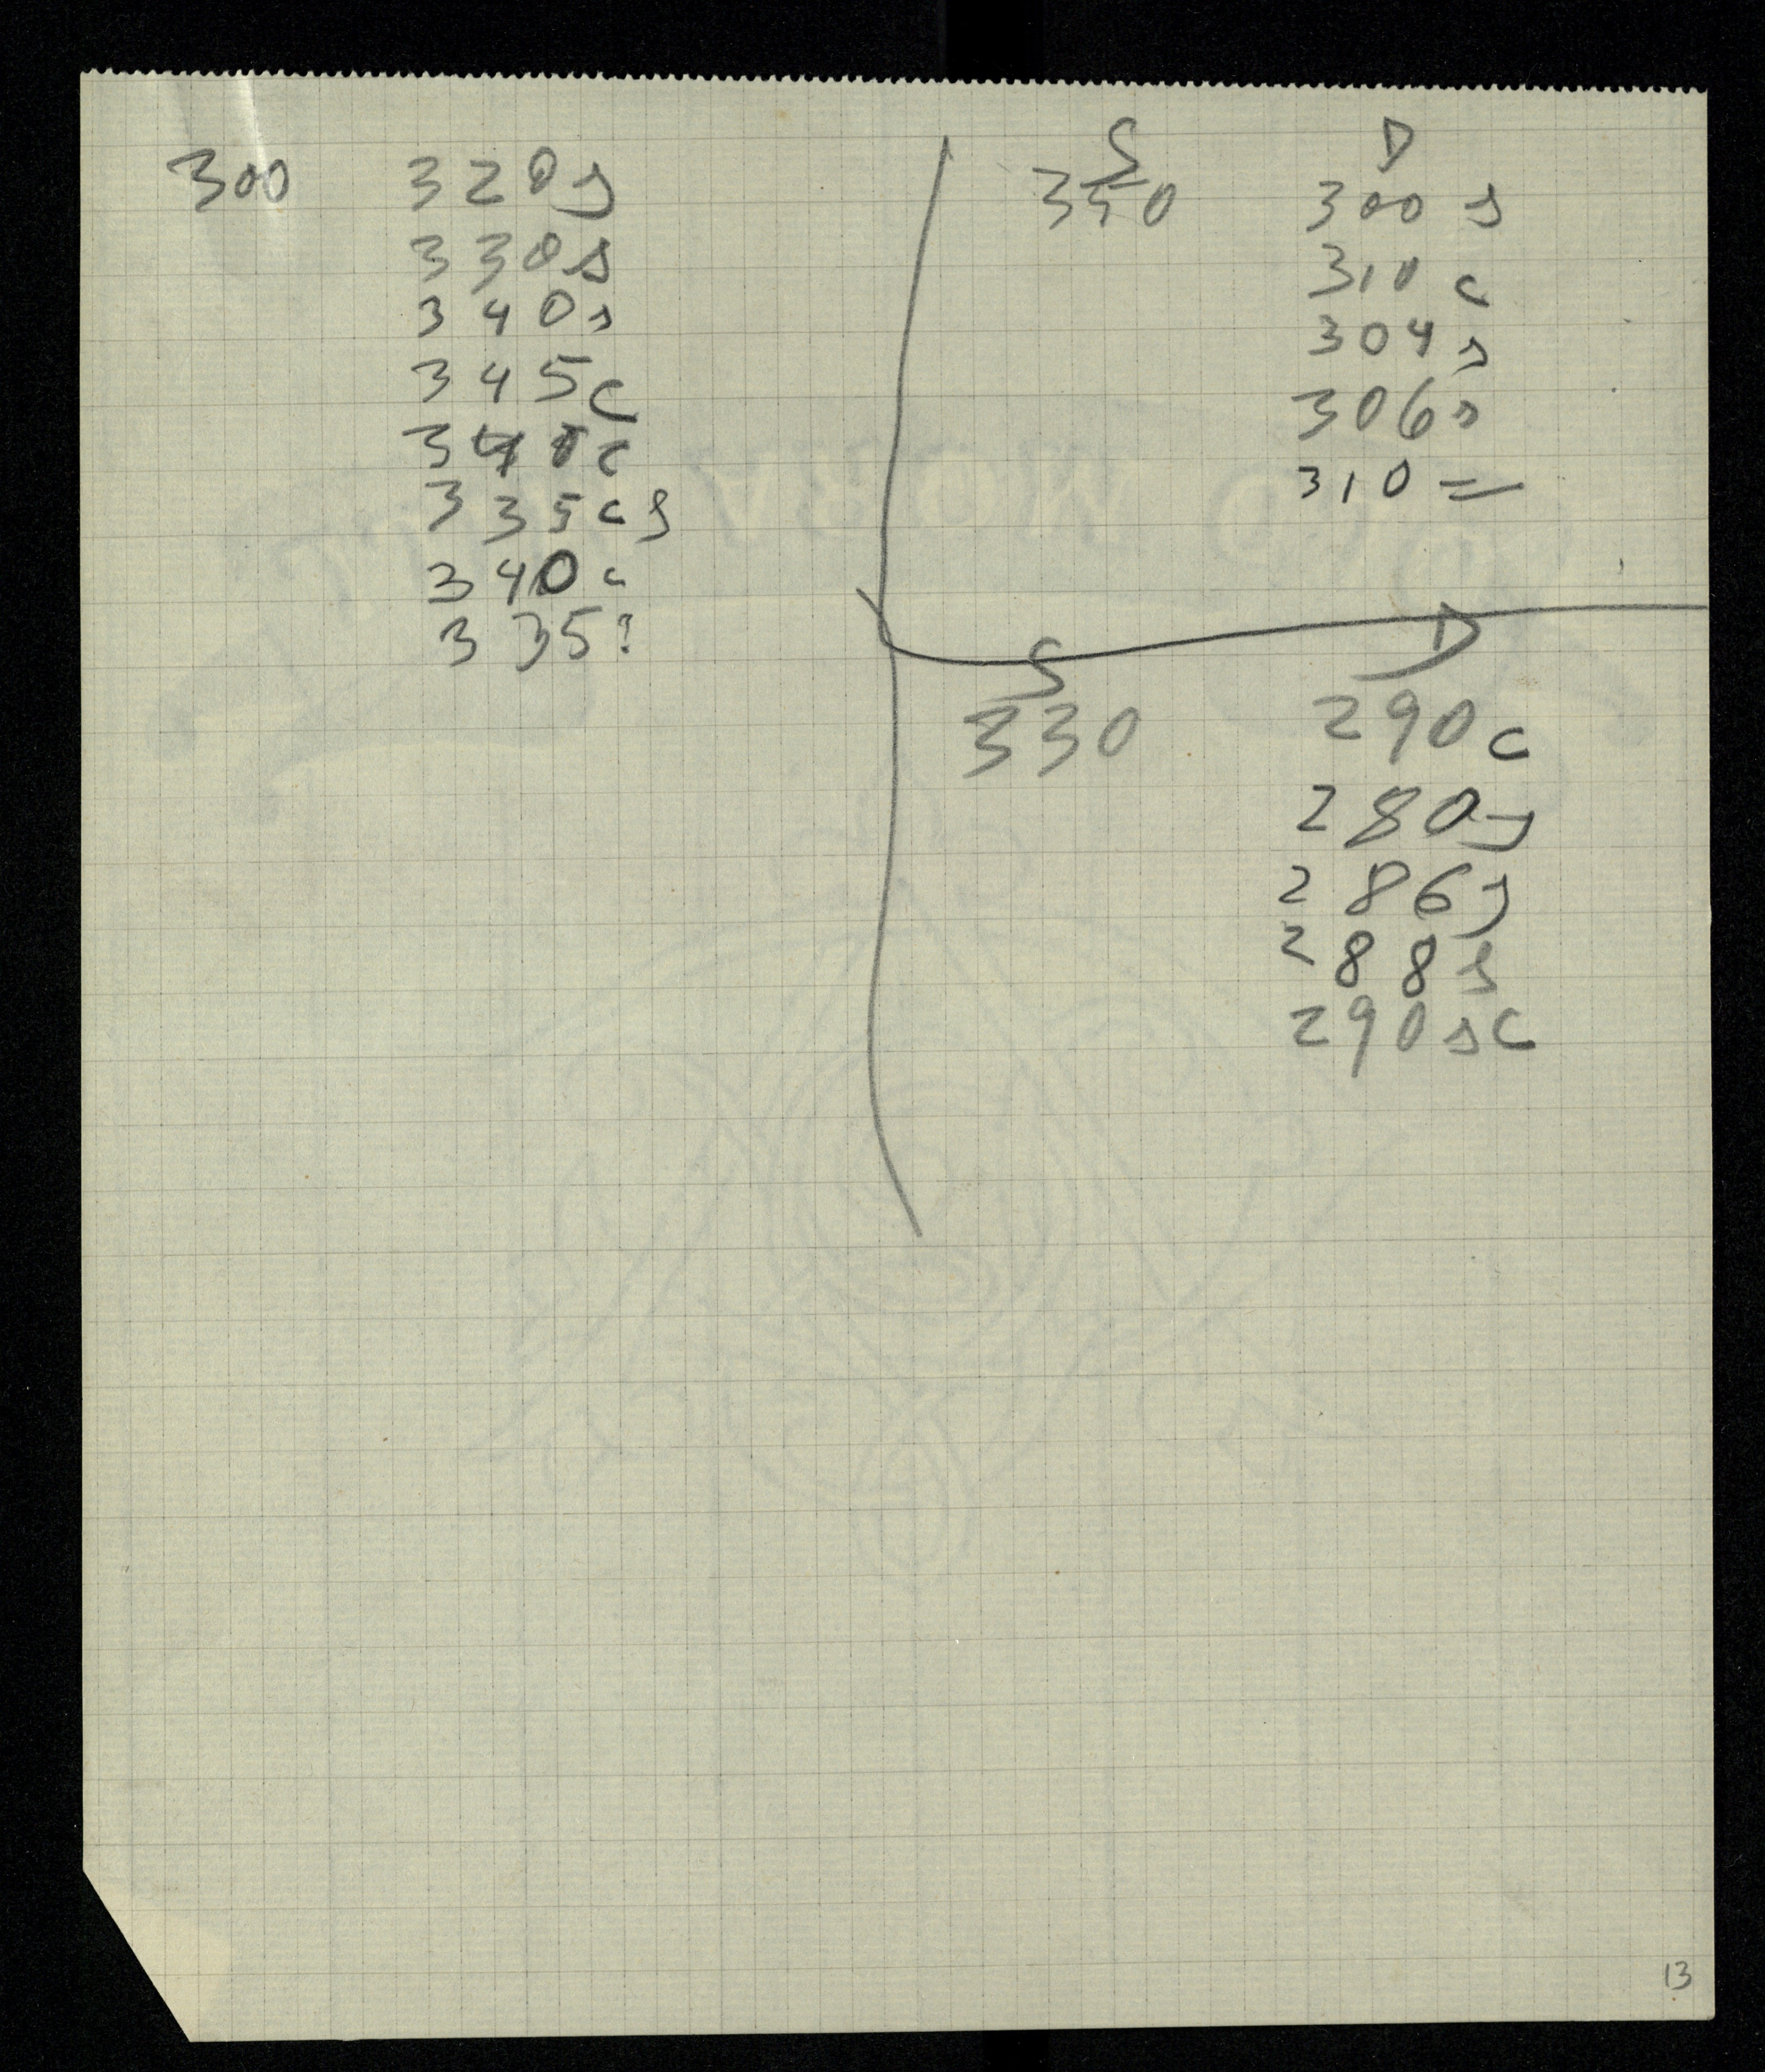 300 320 s
330 s
340 s
345 c
c
335 c s
340 c
335?
S D
350 300 s
310 c
304 s
306 s
310 =
S D
330 290 c
280 s
286 s
288 s
290 s c
13